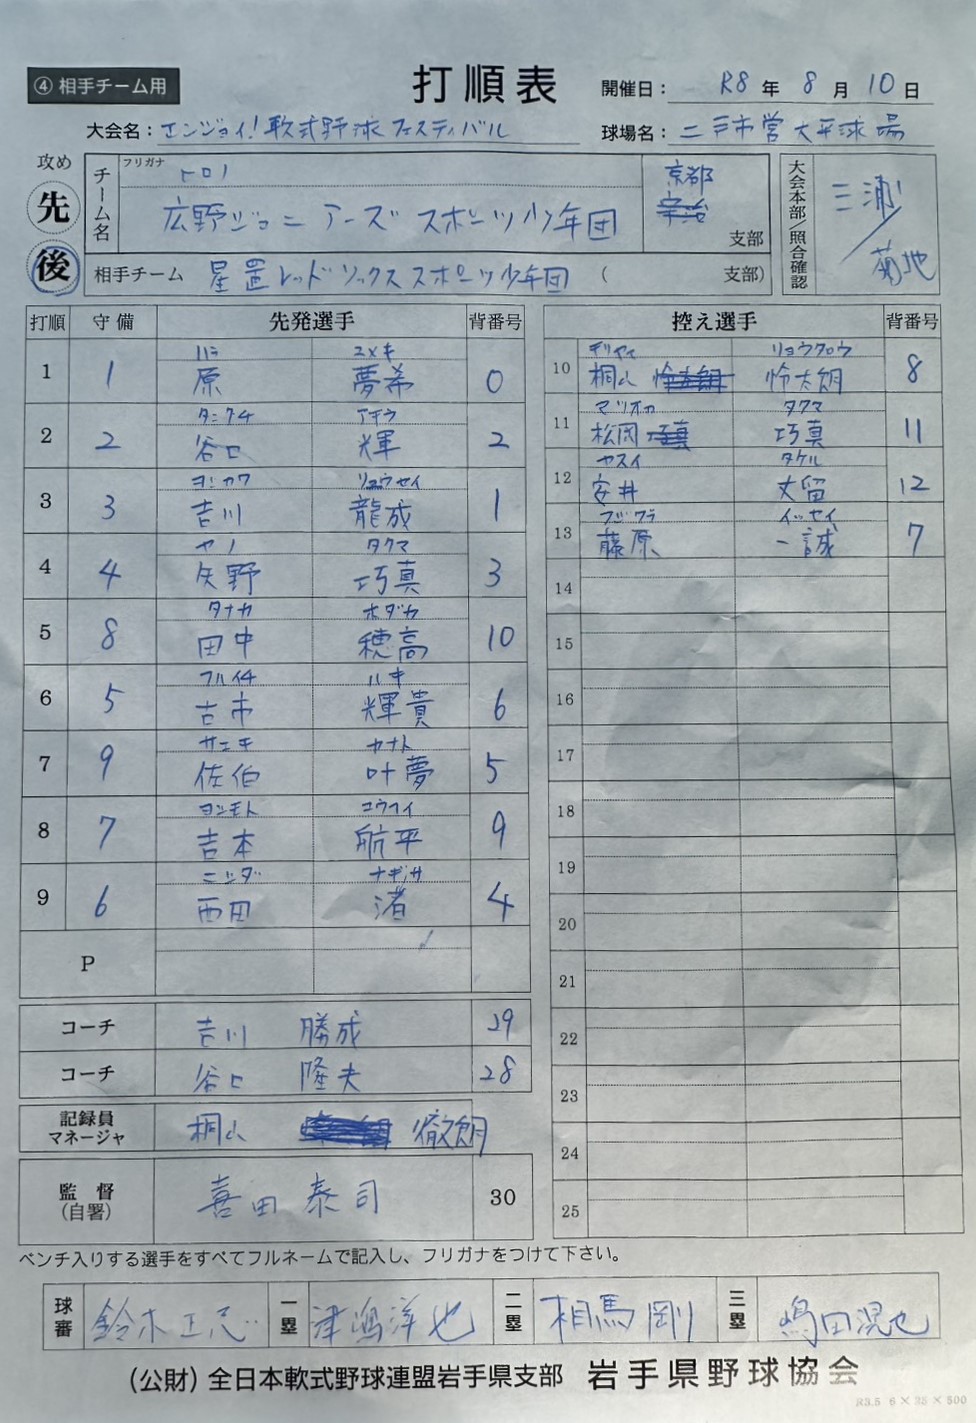 ④ 相手チーム用
打順表
開催日： R8 年 8 月 10 日
大会名： エンジョイ！軟式野球フェスティバル
球場名： 二戸市営大平球場
攻め
先
後
チーム名
フリガナ
広野ジュニアーズ スポーツ少年団
京都
宇治
支部
相手チーム 星置レッドソックススポーツ少年団 （ 支部）
大会本部／照合確認
三浦
菊地
打順 守備 先発選手 背番号
1 1 ハラ ユメキ 原 夢希 0
2 2 タニグチ アキラ 谷口 輝 2
3 3 ヨシカワ リュウセイ 吉川 龍成 1
4 4 ヤノ タクマ 矢野 巧真 3
5 8 タナカ ホダカ 田中 穂高 10
6 5 フルイチ ハキ 古市 輝貴 6
7 9 サエキ カナト 佐伯 叶夢 5
8 7 ヨシモト コウヘイ 吉本 航平 9
9 6 ニシダ ナギサ 西田 渚 4
P
コーチ 吉川 勝成 29
コーチ 谷口 隆夫 28
記録員
マネージャ
桐山 徹朗
監督
（自署）
喜田 泰司 30
控え選手 背番号
10 キリヤマ リョウタロウ 桐山 怜太朗 8
11 マツオカ タクマ 松岡 巧真 11
12 ヤスイ タケル 安井 丈留 12
13 フジワラ イッセイ 藤原 一誠 7
14
15
16
17
18
19
20
21
22
23
24
25
ベンチ入りする選手をすべてフルネームで記入し、フリガナをつけて下さい。
球審 鈴木 一塁 津嶋洋也 二塁 相馬剛 三塁 嶋田滉也
（公財）全日本軟式野球連盟岩手県支部 岩手県野球協会
R3.5 6×25×500